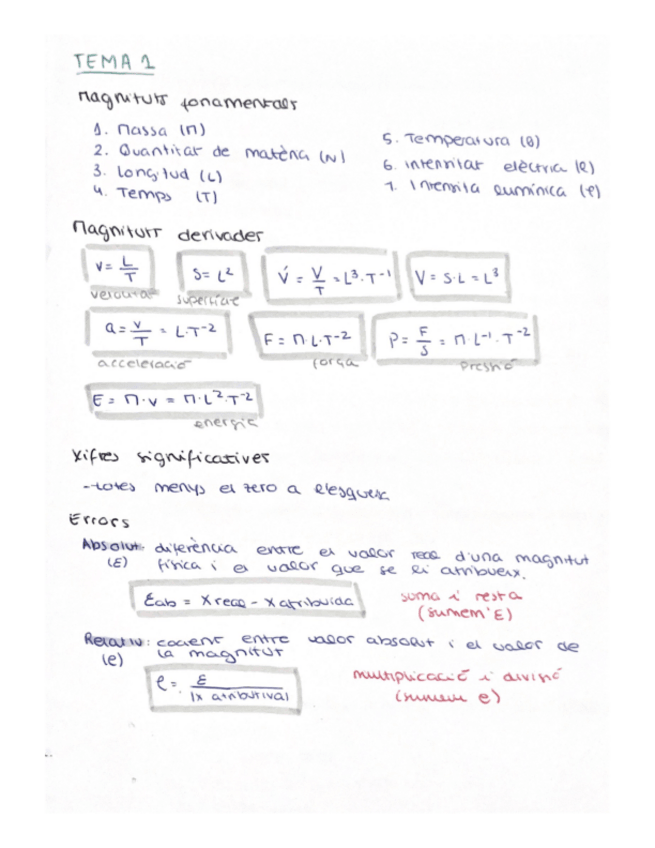 TEMA 1
Magnituts fonamentals
1. Massa (M)
2. Quantitat de matèria (N)
3. Longitud (L)
4. Temps (T)
5. Temperatura (θ)
6. Intensitat elèctrica (I)
7. Intensita lumínica (φ)
Magnituts derivades
V = L/T
velocitat
S = L²
superfície
V̇ = V/T = L³·T⁻¹
V = S·L = L³
a = V/T = L·T⁻²
acceleració
F = M·L·T⁻²
força
P = F/S = M·L⁻¹·T⁻²
pressió
E = M·V = M·L²·T⁻²
energia
Xifres significatives
-totes menys el zero a l'esquerra
Errors
Absolut: diferència entre el valor real d'una magnitut
(Ɛ) física i el valor que se li atribueix.
Ɛab = Xreal - Xatribuida
suma i resta
(sumem Ɛ)
Relatiu: cocient entre valor absolut i el valor de
(e) la magnitut
e = Ɛ / |x atributiva|
multiplicació i divisió
(sumem e)